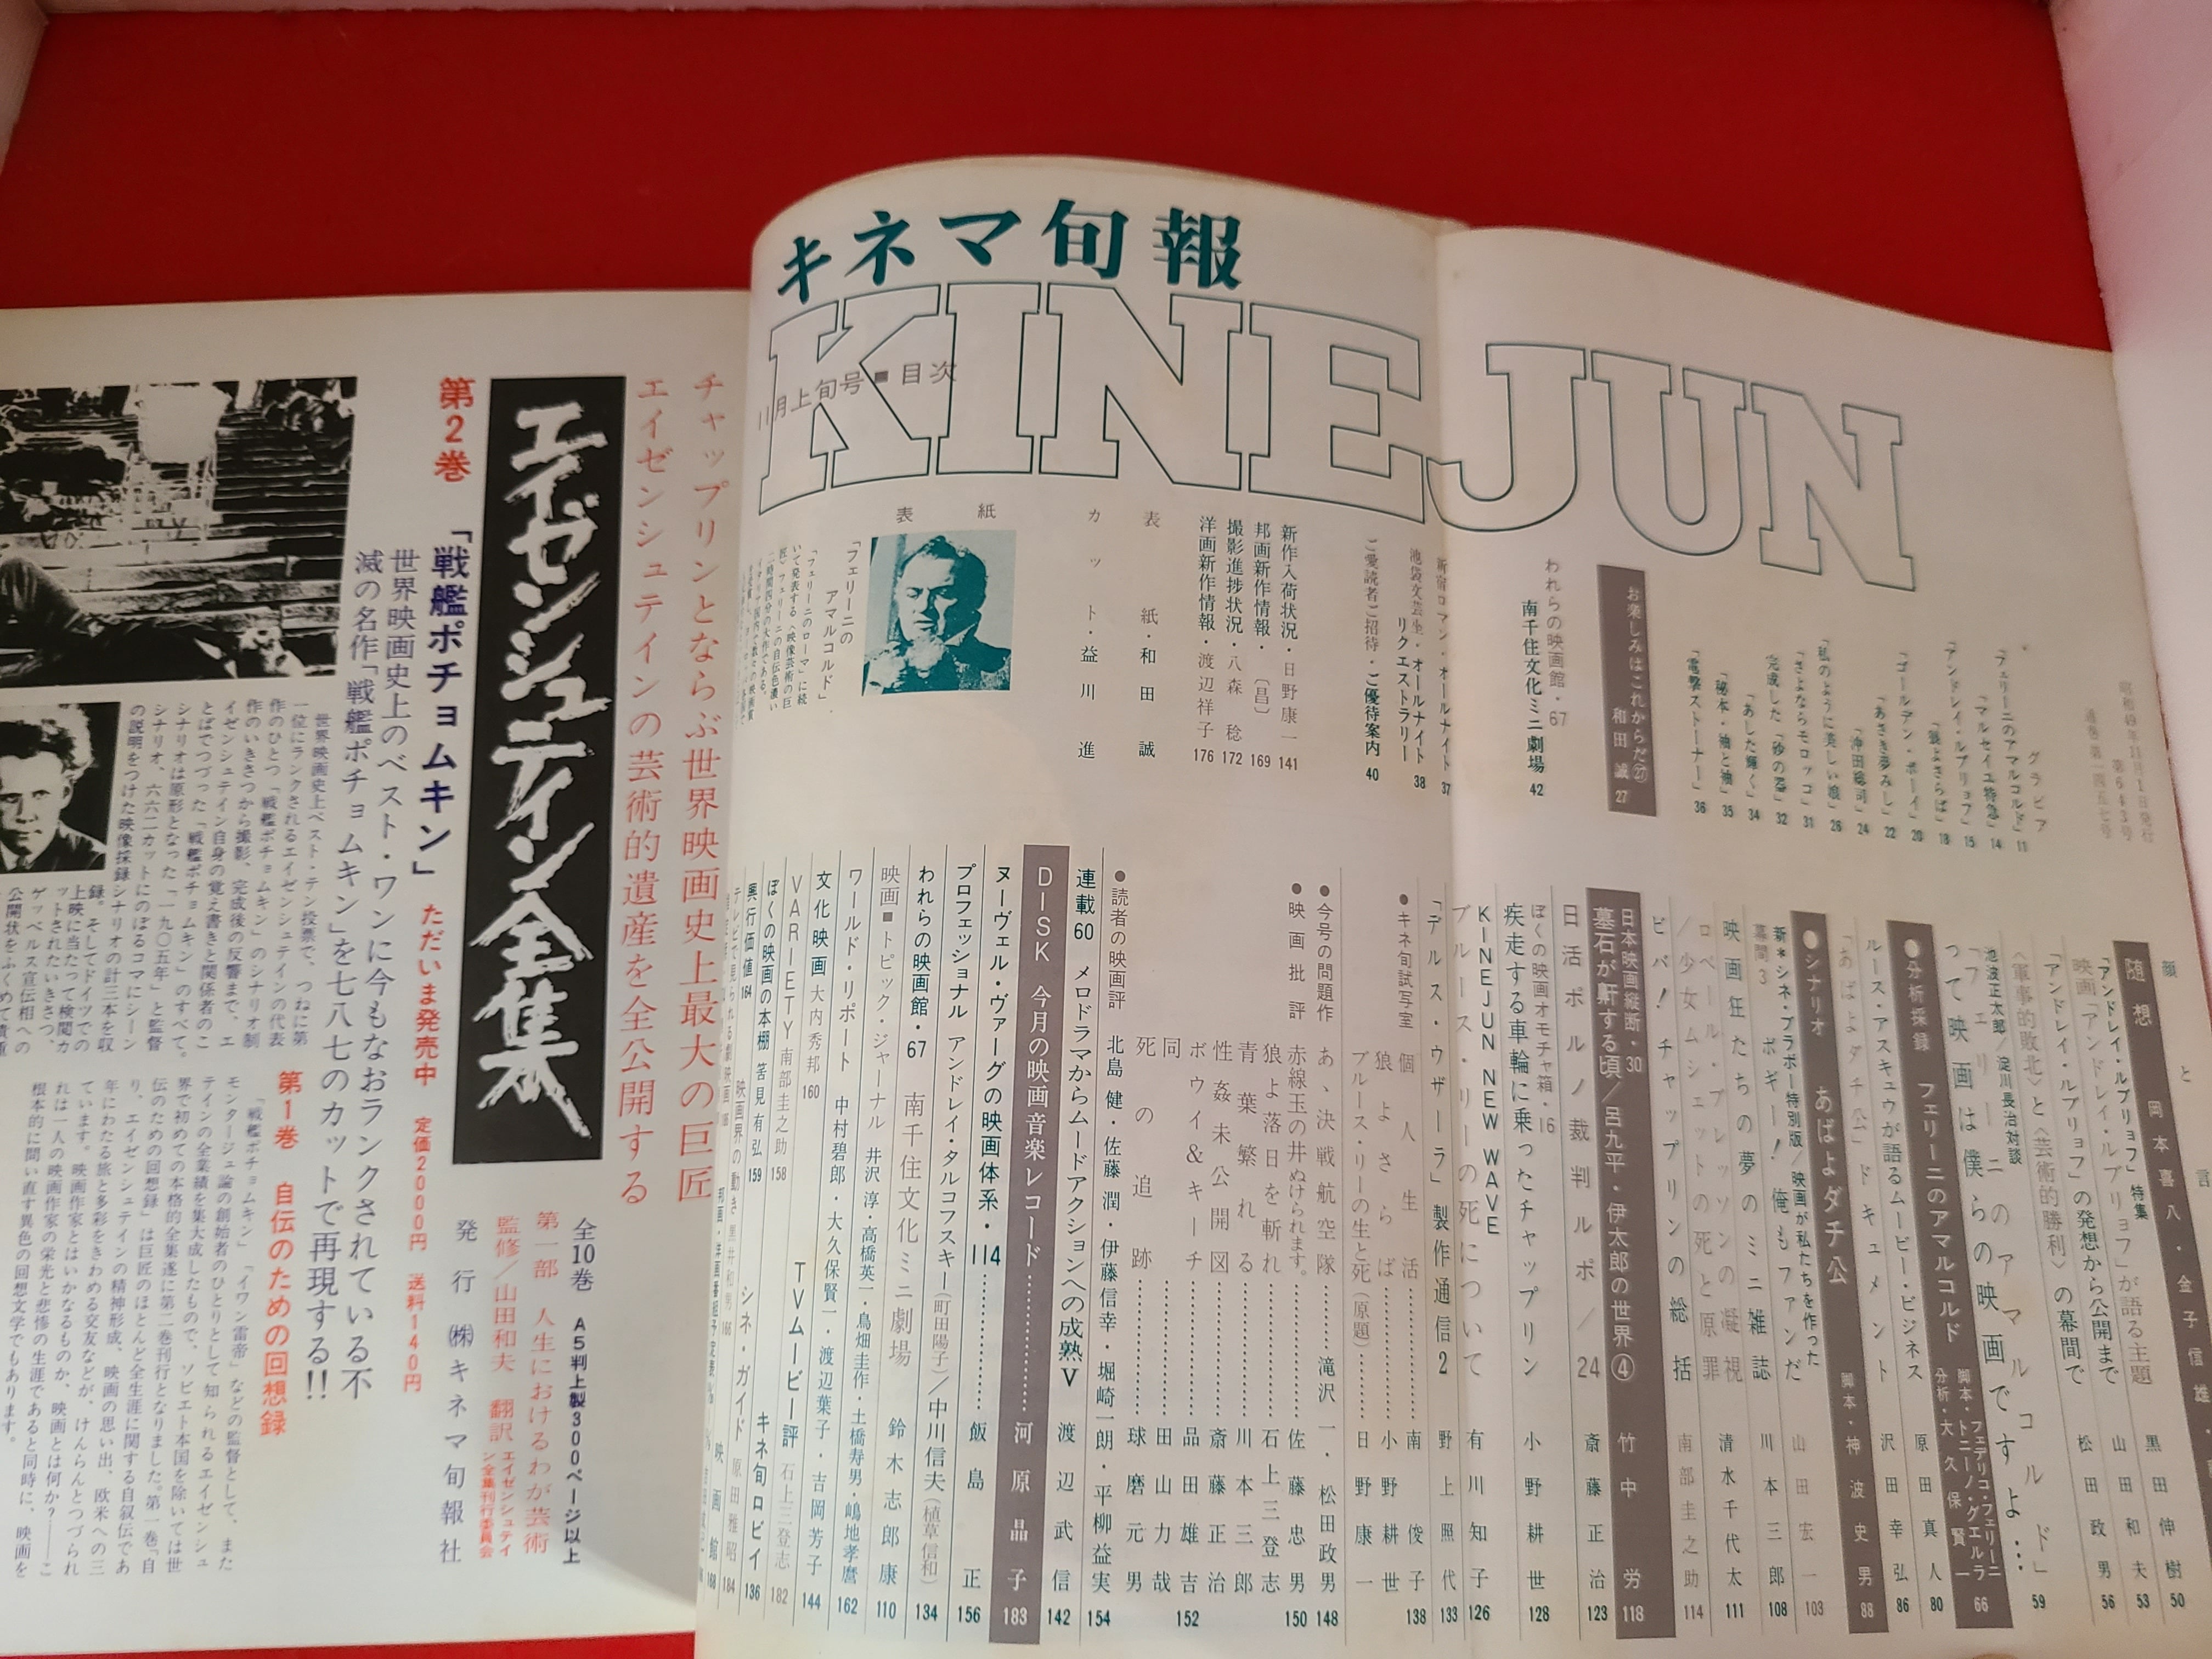 キネマ旬報
KINEJUN
11月上旬号■目次
昭和49年11月1日発行
第643号
通巻第一四五七号
グラビア
「フェリーニのアマルコルド」11
「マルセイユ特急」14
「アンドレイ・ルブリョフ」15
「狼よさらば」18
「ゴールデン・ボーイ」20
「あさき夢みし」22
「沖田総司」24
「私のように美しい娘」26
「さよならモロッコ」31
完成した「砂の器」32
「あした輝く」34
「秘本・袖と袖」35
「電撃ストーナー」36
お楽しみはこれからだ㉗
和田 誠 27
われらの映画館・67
南千住文化ミニ劇場 42
新宿ロマン・オールナイト 37
池袋文芸坐・オールナイト
リクエストラリー 38
ご愛読者ご招待・ご優待案内 40
新作入荷状況・日野康一 141
邦画新作情報・〔昌〕 169
撮影進捗状況・八森 稔 172
洋画新作情報・渡辺祥子 176
表紙・和田 誠
カット・益川 進
表紙
「フェリーニの
アマルコルド」
「フェリーニのローマ」に続
いて発表する〈映像芸術の巨
匠〉フェリーニの自伝色濃い
二時間四分の大作である。
随想 岡本喜八・金子信雄
黒田伸樹 50
「アンドレイ・ルブリョフ」特集
「アンドレイ・ルブリョフ」が語る主題 山田和夫 53
映画「アンドレイ・ルブリョフ」の発想から公開まで
〈軍事的敗北〉と〈芸術的勝利〉の幕間で 松田政男 56
池波正太郎/淀川長治対談
「フェリーニのアマルコルド」
って映画は僕らの映画ですよ… 59
●分析採録 フェリーニのアマルコルド
脚本・フェデリコ・フェリーニ
トニーノ・グエルラ
分析・大久保賢一 66
ルース・アスキュウが語るムービー・ビジネス 原田真人 80
「あばよダチ公」ドキュメント 沢田幸弘 86
●シナリオ あばよダチ公 脚本・神波史男 88
新＊シネ・ブラボー特別版/映画が私たちを作った
幕間3 ボギー！俺もファンだ 山田宏一 103
川本三郎 108
映画狂たちの夢のミニ雑誌 清水千代太 111
ロベール・ブレッソンの凝視
/少女ムシェットの死と原罪 南部圭之助 114
ビバ！チャップリンの総括
日本映画縦断・30
墓石が鼾する頃/呂九平・伊太郎の世界④ 竹中 労 118
日活ポルノ裁判ルポ/24 斎藤正治 123
ぼくの映画オモチャ箱・16
疾走する車輪に乗ったチャップリン 小野耕世 128
KINEJUN NEW WAVE
ブルース・リーの死について 有川知子 126
「デルス・ウザーラ」製作通信2 野上照代 133
●キネ旬試写室
個人生活 南 俊子 138
狼よさらば 小野耕世
ブルース・リーの生と死(原題) 日野康一
●今号の問題作
あゝ決戦航空隊 滝沢 一・松田政男 148
●映画批評
赤線玉の井ぬけられます。 佐藤忠男 150
狼よ落日を斬れ 石上三登志
青葉繁れる 川本三郎
性姦未公開図 斎藤正治
ボウイ&キーチ 品田雄吉 152
同 田山力哉
死の追跡 球磨元男
●読者の映画評
北島 健・佐藤 潤・伊藤信幸・堀崎一朗・平柳益実 154
連載60 メロドラマからムードアクションへの成熟Ⅴ 渡辺武信 142
DISK 今月の映画音楽レコード 河原晶子 183
ヌーヴェル・ヴァーグの映画体系・14 飯島 正 156
プロフェッショナル アンドレイ・タルコフスキー(町田陽子)/中川信夫(植草信和) 134
われらの映画館・67 南千住文化ミニ劇場 鈴木志郎康 110
映画■トピック・ジャーナル 井沢 淳・高橋英一・鳥畑圭作・土橋寿男・嶋地孝麿 162
ワールド・リポート 中村碧郎・大久保賢一・渡辺葉子・吉岡芳子 144
文化映画 大内秀邦 160
TVムービー評 石上三登志 182
VARIETY 南部圭之助 158
ぼくの映画の本棚 筈見有弘 159
キネ旬ロビイ 136
興行価値 164
映画界の動き 黒井和男 166
シネ・ガイド 原田雅昭 184
チャップリンとならぶ世界映画史上最大の巨匠
エイゼンシュテインの芸術的遺産を全公開する
エイゼンシュテイン全集
全10巻 A5判上製300ページ以上
第一部 人生におけるわが芸術
監修/山田和夫 翻訳 エイゼンシュテイン全集刊行委員会
発行 ㈱キネマ旬報社
第2巻
「戦艦ポチョムキン」ただいま発売中 定価2000円 送料140円
世界映画史上のベスト・ワンに今もなおランクされている不
滅の名作「戦艦ポチョムキン」を七八七のカットで再現する!!
世界映画史上ベスト・テン投票で、つねに第
一位にランクされるエイゼンシュテインの代表
作のひとつ「戦艦ポチョムキン」のシナリオ制
作のいきさつから撮影、完成後の反響まで、エ
イゼンシュテイン自身の覚え書きと関係者のこ
とばでつづった「戦艦ポチョムキン」のすべて。
シナリオは原形となった「一九〇五年」と監督
シナリオ、六六二カットにのぼるコマにシーン
の説明をつけた映像採録シナリオの計三本を収
録。そしてドイツでの
上映に当たって検閲カ
ットされたいきさつ、
ゲッベルス宣伝相への
第1巻 自伝のための回想録
「戦艦ポチョムキン」「イワン雷帝」などの監督として、また
モンタージュ論の創始者のひとりとして知られるエイゼンシュ
テインの全業績を集大成したもので、ソビエト本国を除いては世
界で初めての本格的全集遂に第二巻刊行となりました。第一巻「自
伝のための回想録」は巨匠のほとんど全生涯に関する自叙伝であ
り、エイゼンシュテインの精神形成、映画の思い出、欧米への三
年にわたる旅と多彩をきわめる交友などが、けんらんとつづられ
ています。映画作家とはいかなるものか、映画とは何か？――こ
れは一人の映画作家の栄光と悲惨の生涯であると同時に、映画を
根本的に問い直す異色の回想文学でもあります。